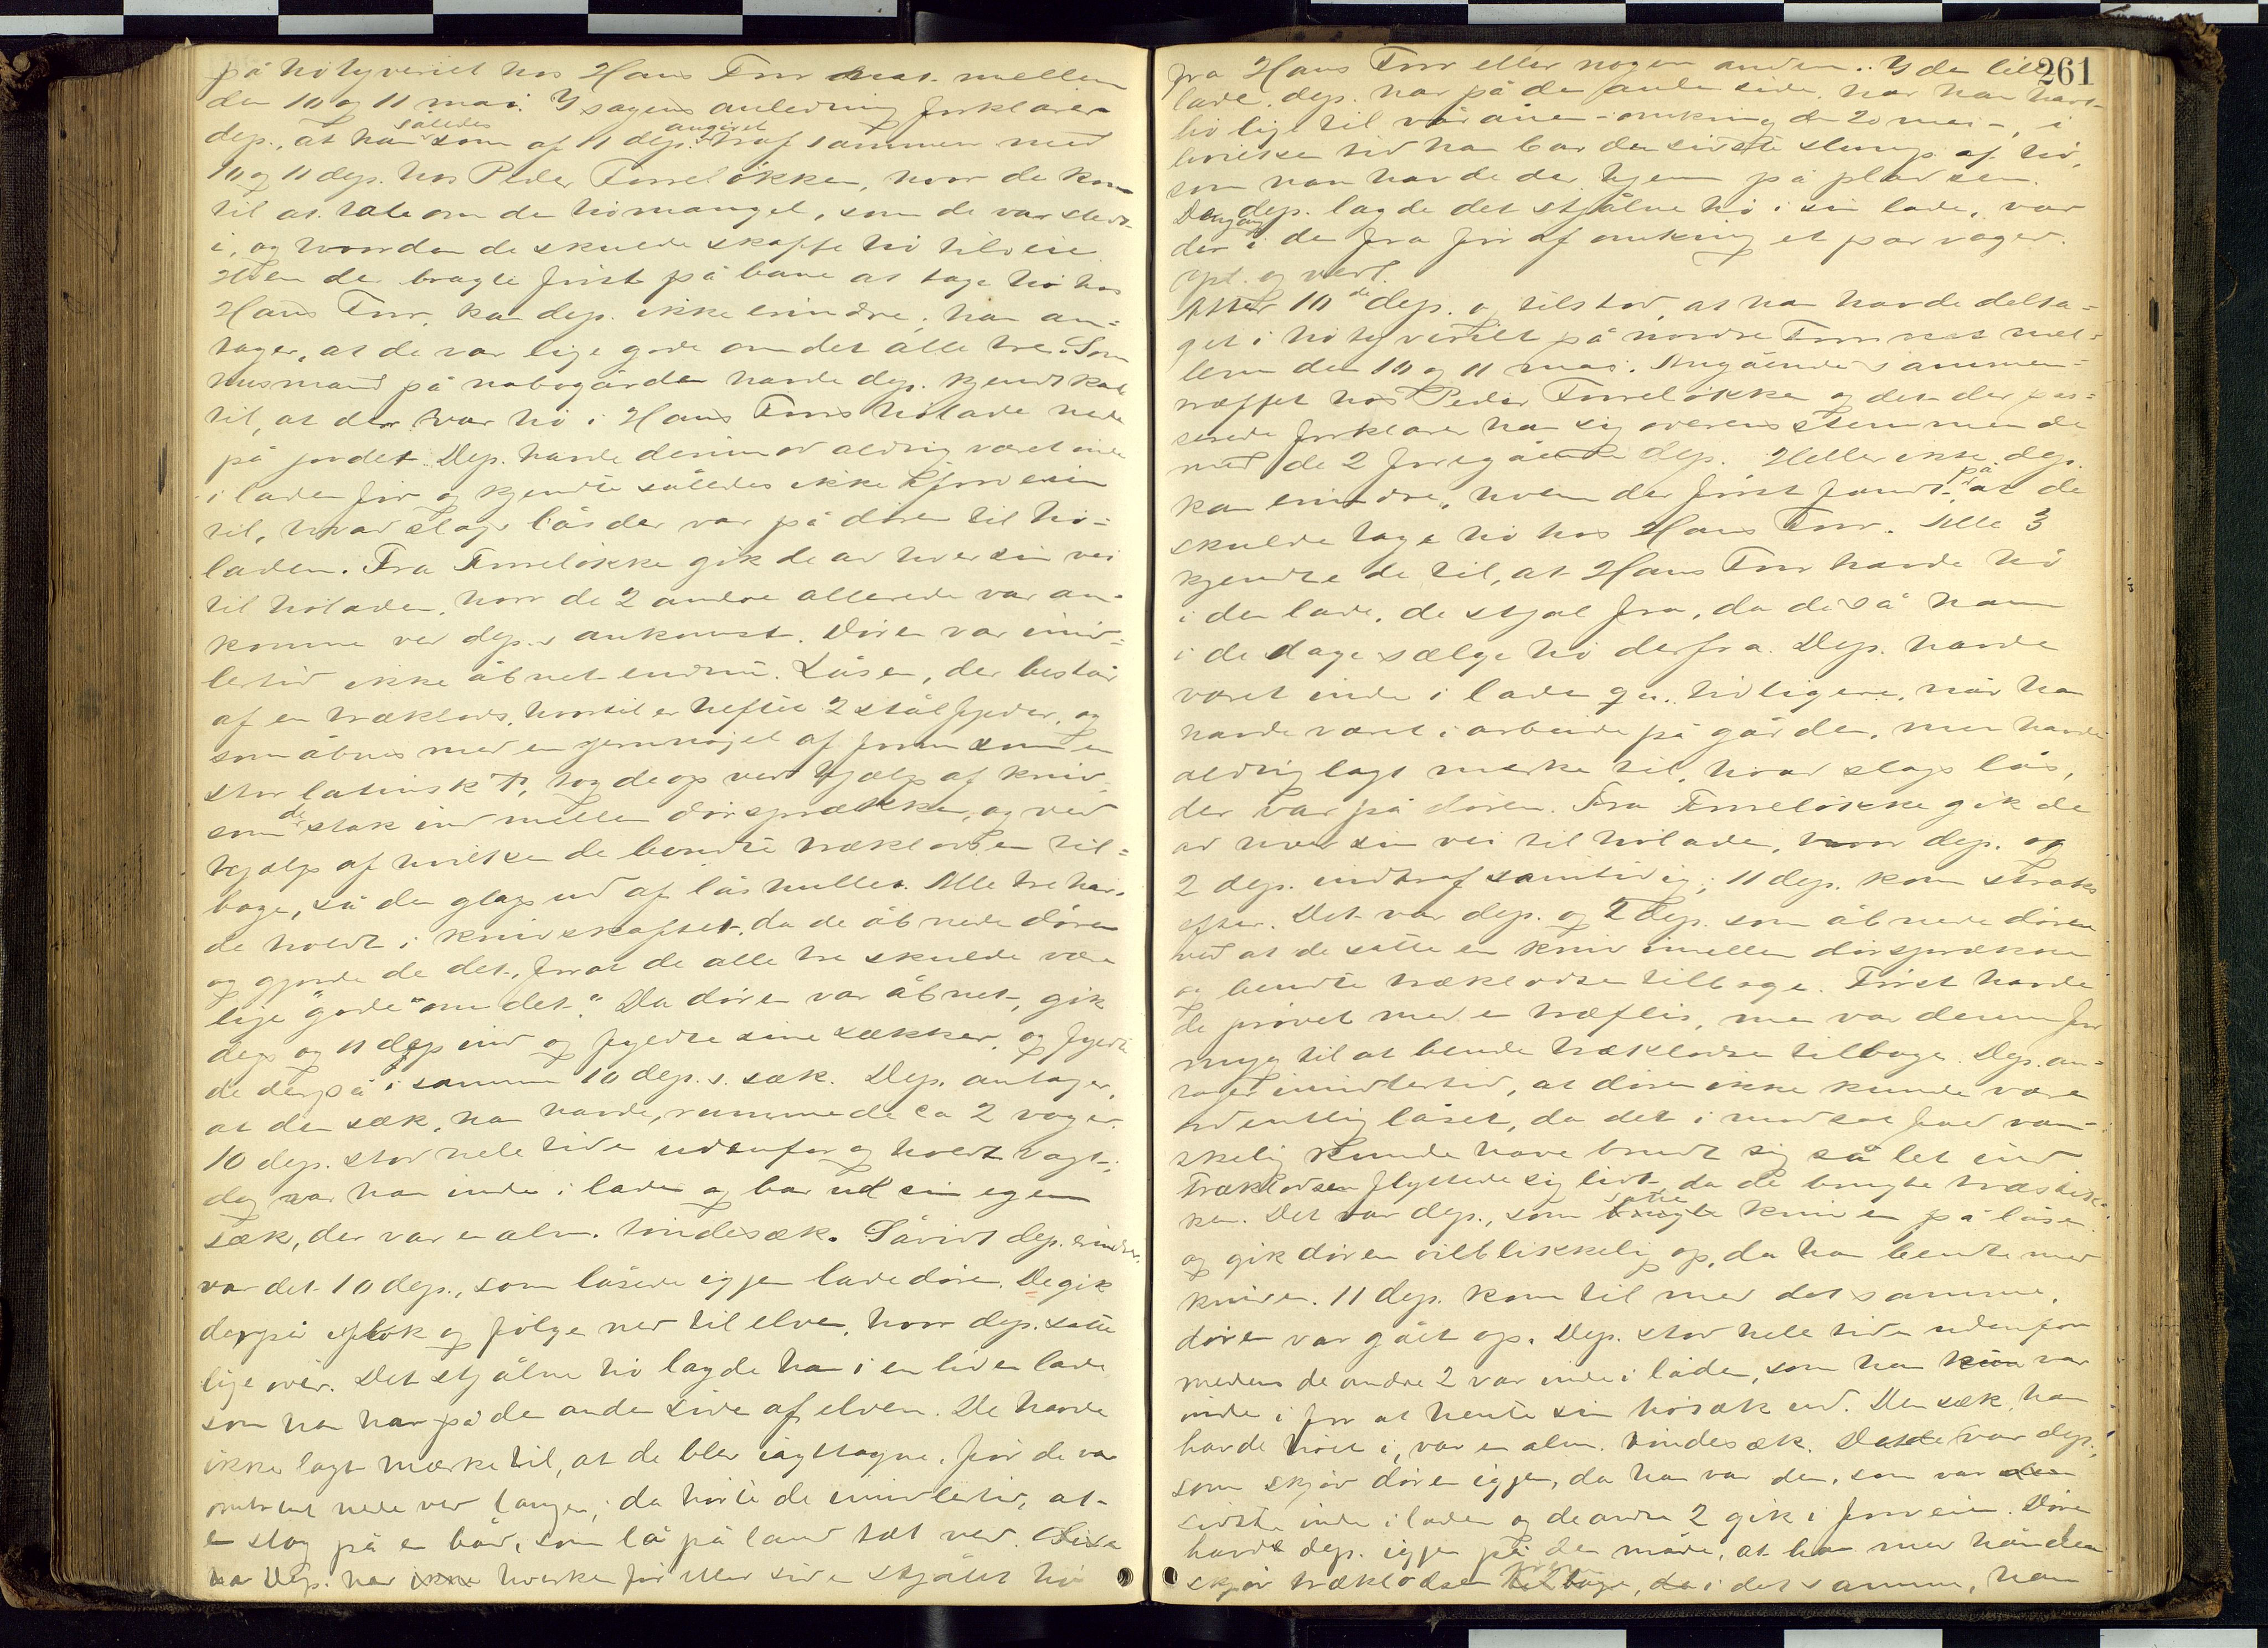 på høtyveriet hos Hans Tnr nat. mellem
den 10 og 11 mai. I sagens anledning forklarer
dep., at han således som af 11 dep. angivet traf sammen med
10 og 11 dep. hos Peder Tnreløkken, hvor de kom
til at tale om den hømangel, som de var stedt
i, og hvordan de skulde skaffe hø tilveie.
Hvem der bragte først på bane at tage hø hos
Hans Tnr, kan dep. ikke erindre; han an=
tager, at de var lige gode om det alle tre. Som
husmand på nabogården havde dep. kjendskab
til, at der var hø i Hans Tnrs hølade nede
på jordet. Dep. havde derimod aldrig været inde
i laden før og kjendte således ikke i forveien
til, hvad slags lås der var på døren til hø=
laden. Fra Tnreløkke gik de ad hver sin vei
til høladen, hvor de 2 andre allerede var an=
komne ved dep.s ankomst. Døren var imid=
lertid ikke åbnet endnu. Låsen, der består
af en træklods, hvortil er heftet 2 stålfjedre, og
som åbnes med en jernnøjel af form som en
stor latinsk T, tog de op ved hjælp af kniv,
som de stak ind mellem dørsprækken, og ved
hjælp af hvilken de bendte træklodsen til=
bage, så den glap ud af låshullet. Alle tre hav=
de holdt i knivskaftet, da de åbnede døren
og gjorde de det, forat de alle tre skulde være
lige "gode" om det." Da døren var åbnet, gik
dep og 11 dep ind og fyldte sine sækker, og fyldte
de derpå i sammen 10 dep.s. sæk. Dep. antager,
at den sæk, han havde, rummede ca 2 våger.
10 dep. stod hele tiden udenfor og holdt vagt;
dog var han inde i laden og bar ud sin egen
sæk, der var en alm. tøndesæk. Såvidt dep. erindrer,
var det 10 dep., som låsede igjen ladedøren. De gik
derpå i flok og følge ned til elven, hvor dep. satte
lige over. Det stjålne hø lagde han i en liden lade
som han har på den anden side af elven. De havde
ikke lagt mærke til, at de blev iagttagne, før de var
omtrent nede ved tangen; da hørte de imidlertid, at
en slog på en båd, som lå på land tæt ved.
Dep. har ikke hverken før eller siden stjålet hø
261
fra Hans Tnr eller nogen anden. I den lille
lade, dep. har på den anden side, har han havt
hø lige til våronnen - omkring den 20 mai -, i
hvilken tid han bar den sidste slump af hø,
som han havde der, hjem på pladsen.
Dengang dep. lagde det stjålne hø i sin lade, var
der i den fra før af omkring et par våger.
Opl. og vedt.
Atter 10de dep. og tilstod, at han havde delta=
get i høtyveriet på nordre Tnr nat mel=
lem den 10 og 11 mai. Angående sammen=
træffet hos Peder Tnreløkke og det der pas=
serede forklarer han sig overensstemmende
med de 2 foregående dep. Heller ikke dep.
kan erindre, hvem der først fandt på, at de
skulde tage hø hos Hans Tnr. Alle 3
kjendte de til, at Hans Tnr havde hø
i den lade, de stjal fra, da de så ham
i de dage sælge hø derfra. Dep. havde
været inde i laden gu. tidligere, når han
havde været i arbeide på gården, men havde
aldrig lagt mærke til, hvad slags lås,
der var på døren. Fra Tnreløkke gik de
ad hver sin vei til høladen, hvor dep. og
2 dep. indtraf samtidig; 11 dep. kom straks
efter. Det var dep. og 2 dep. som åbnede døren
ved at de satte en kniv imellem dørsprækken
og bendte træklodsen tilbage. Først havde
de prøvet med en træflis, men var denne for
myg til at bende træklodsen tilbage. Dep. an=
tager imidlertid, at døren ikke kunde være
ordentlig låset, da det i modsat fald van=
skelig kunde have brudt sig så let ind.
Træklodsen flyttede sig lidt, da de brugte træstik=
ken. Det var dep., som brugte satte kniven på låsen
og gik døren øieblikkelig op, da han bendte med
kniven. 11 dep. kom til med det samme,
døren var gået op. Dep. stod hele tiden udenfor
medens de andre 2 var inde i laden, som han kun var
inde i for at hente sin høsæk ud. Den sæk, han
havde høet i, var en alm. tøndesæk. Det var dep.,
som skjøv døren igjen, da han var den, som var den
sidste inde i laden og de andre 2 gik i forveien. Døren
havde dep. igjen på den måde, at han med hånden
skjøv træklodsen tilbage, da i det samme, han